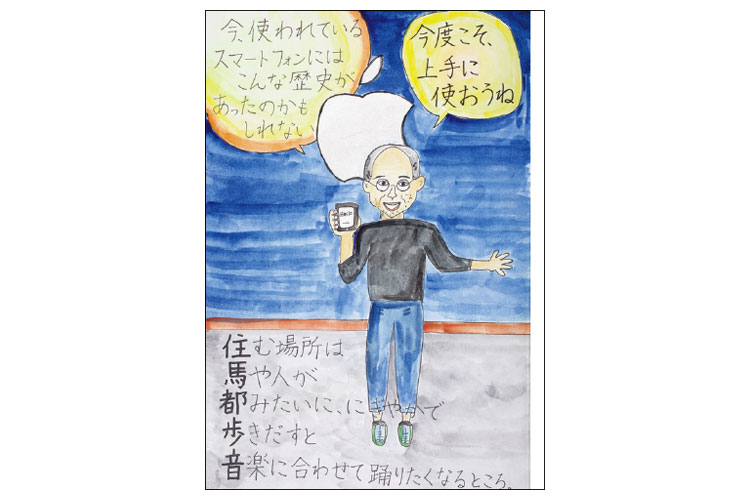 今、使われている
スマートフォンには
こんな歴史が
あったのかも
しれない
今度こそ、
上手に
使おうね
住む場所は
馬や人が
都みたいに、にぎやかで
歩きだすと
音楽に合わせて踊りたくなるところ。